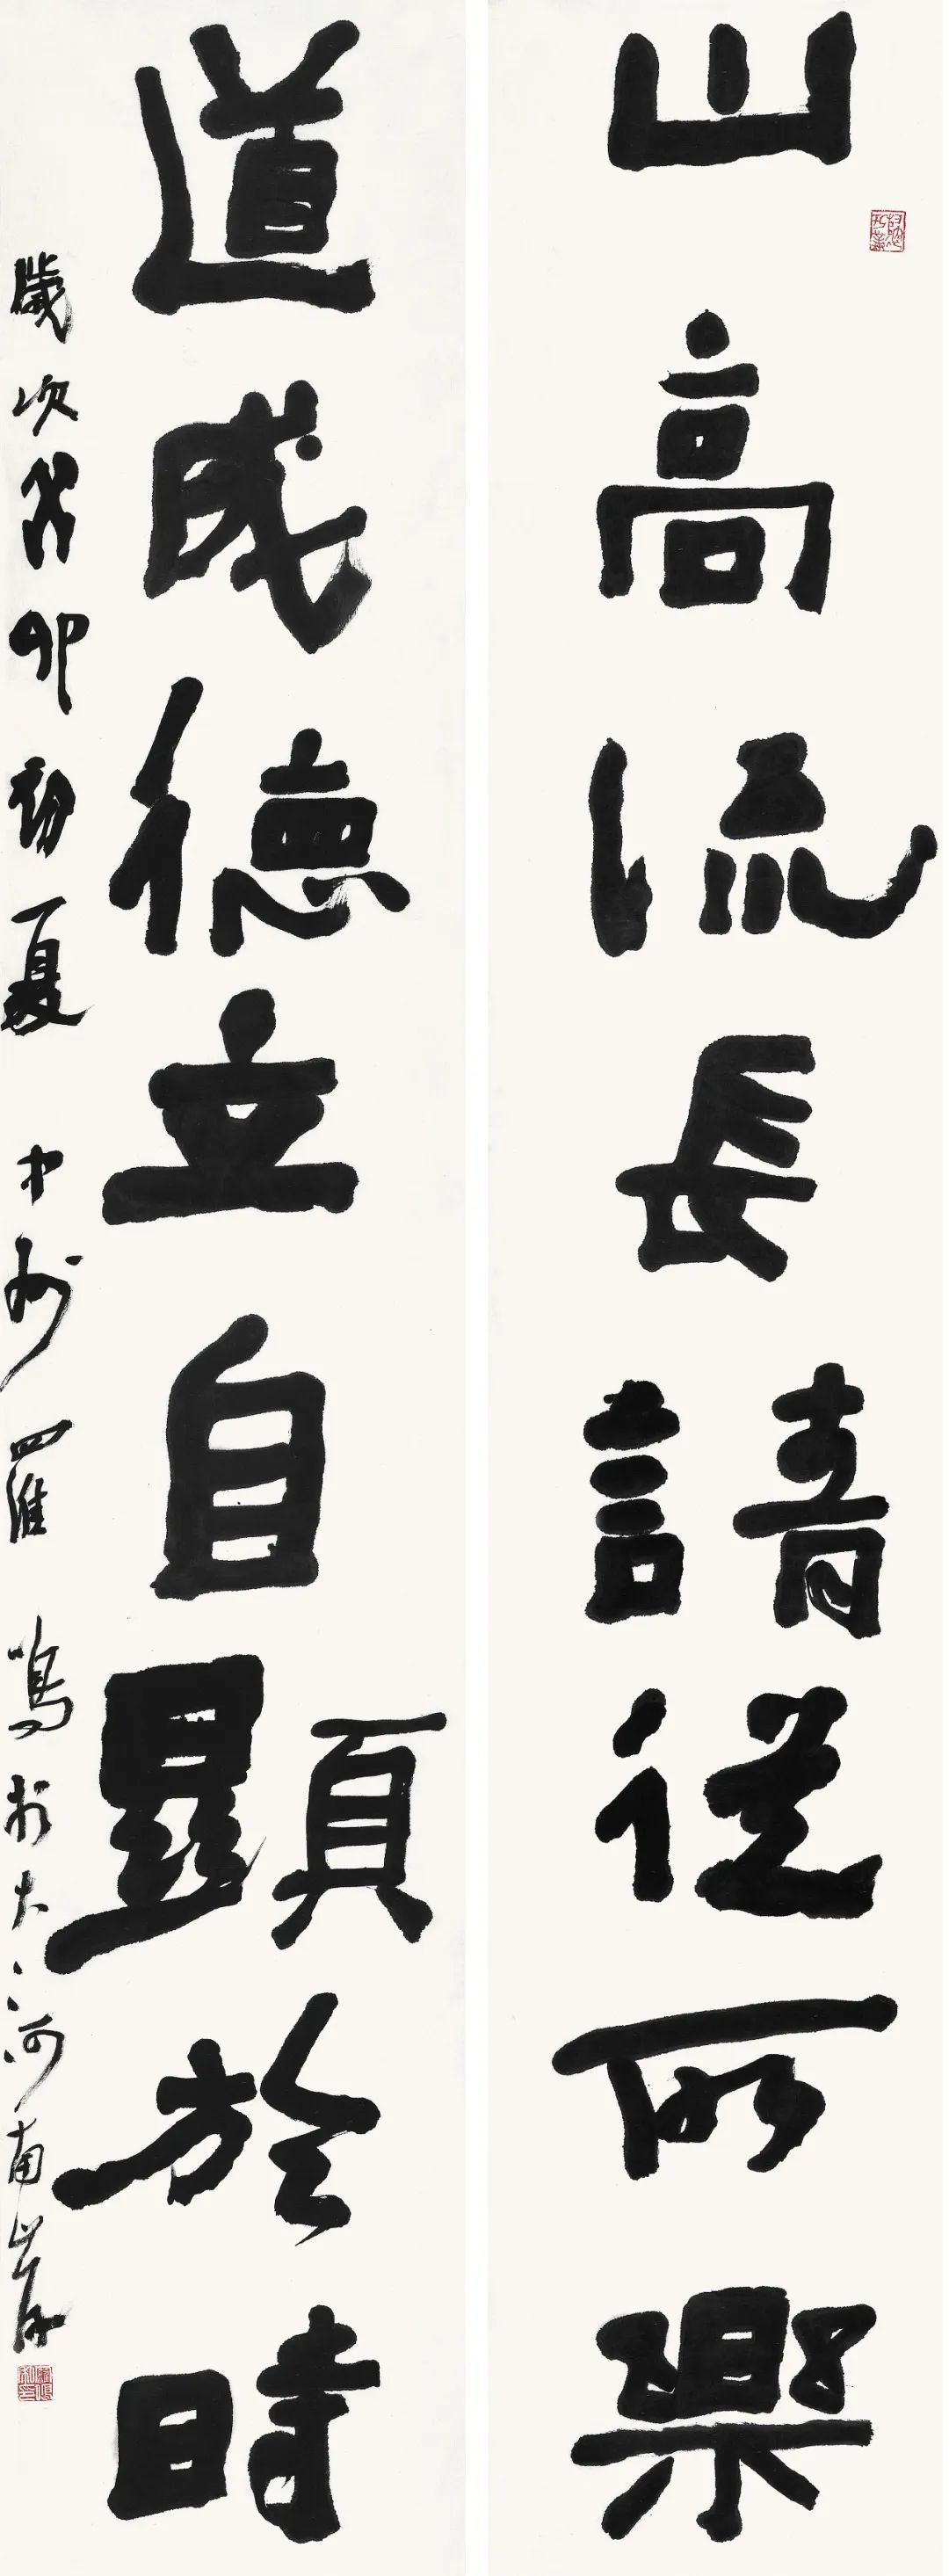 山高流長請從所樂
道成德立自顯於時
歲次癸卯初夏中州羅鳴於大河南岸